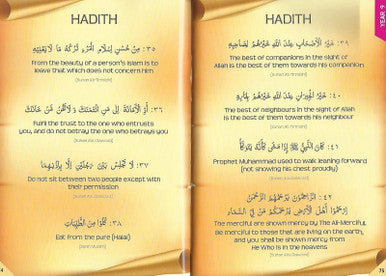 HADITH
٣٥: مِنْ حُسْنِ إِسْلَامِ الْمَرْءِ تَرْكُهُ مَا لَا يَعْنِيهِ
From the beauty of a person's Islam is to
leave that which does not concern him
٣٦: أَدِّ الْأَمَانَةَ إِلَى مَنِ ائْتَمَنَكَ وَلَا تَخُنْ مَنْ خَانَكَ
Fulfil the trust to the one who entrusts
you, and do not betray the one who betrays
you
٣٧: لَا تَجْلِسْ بَيْنَ رَجُلَيْنِ إِلَّا بِإِذْنِهِمَا
Do not sit between two people except with
their permission
٣٨: كُلُوا مِنَ الطَّيِّبَاتِ
Eat from the pure (Halal)
HADITH
YEAR 9
٣٩: خَيْرُ الْأَصْحَابِ عِنْدَ اللَّهِ خَيْرُهُمْ لِصَاحِبِهِ
The best of companions in the sight of
Allah is the best of them towards his companion
٤٠: خَيْرُ الْجِيرَانِ عِنْدَ اللَّهِ خَيْرُهُمْ لِجَارِهِ
The best of neighbours in the sight of Allah
is the best of them towards his neighbour
٤١: كَانَ النَّبِيُّ ﷺ إِذَا مَشَى كَأَنَّهُ يَتَوَكَّأُ
Prophet Muhammad used to walk leaning forward
(not showing his chest proudly)
٤٢: الرَّاحِمُونَ يَرْحَمُهُمُ الرَّحْمَنُ
ارْحَمُوا أَهْلَ الْأَرْضِ يَرْحَمْكُمْ مَنْ فِي السَّمَاءِ
The merciful are shown mercy by The All-Merciful,
be merciful to those that are living on the earth,
and you shall be shown mercy from
He Who is in the heavens